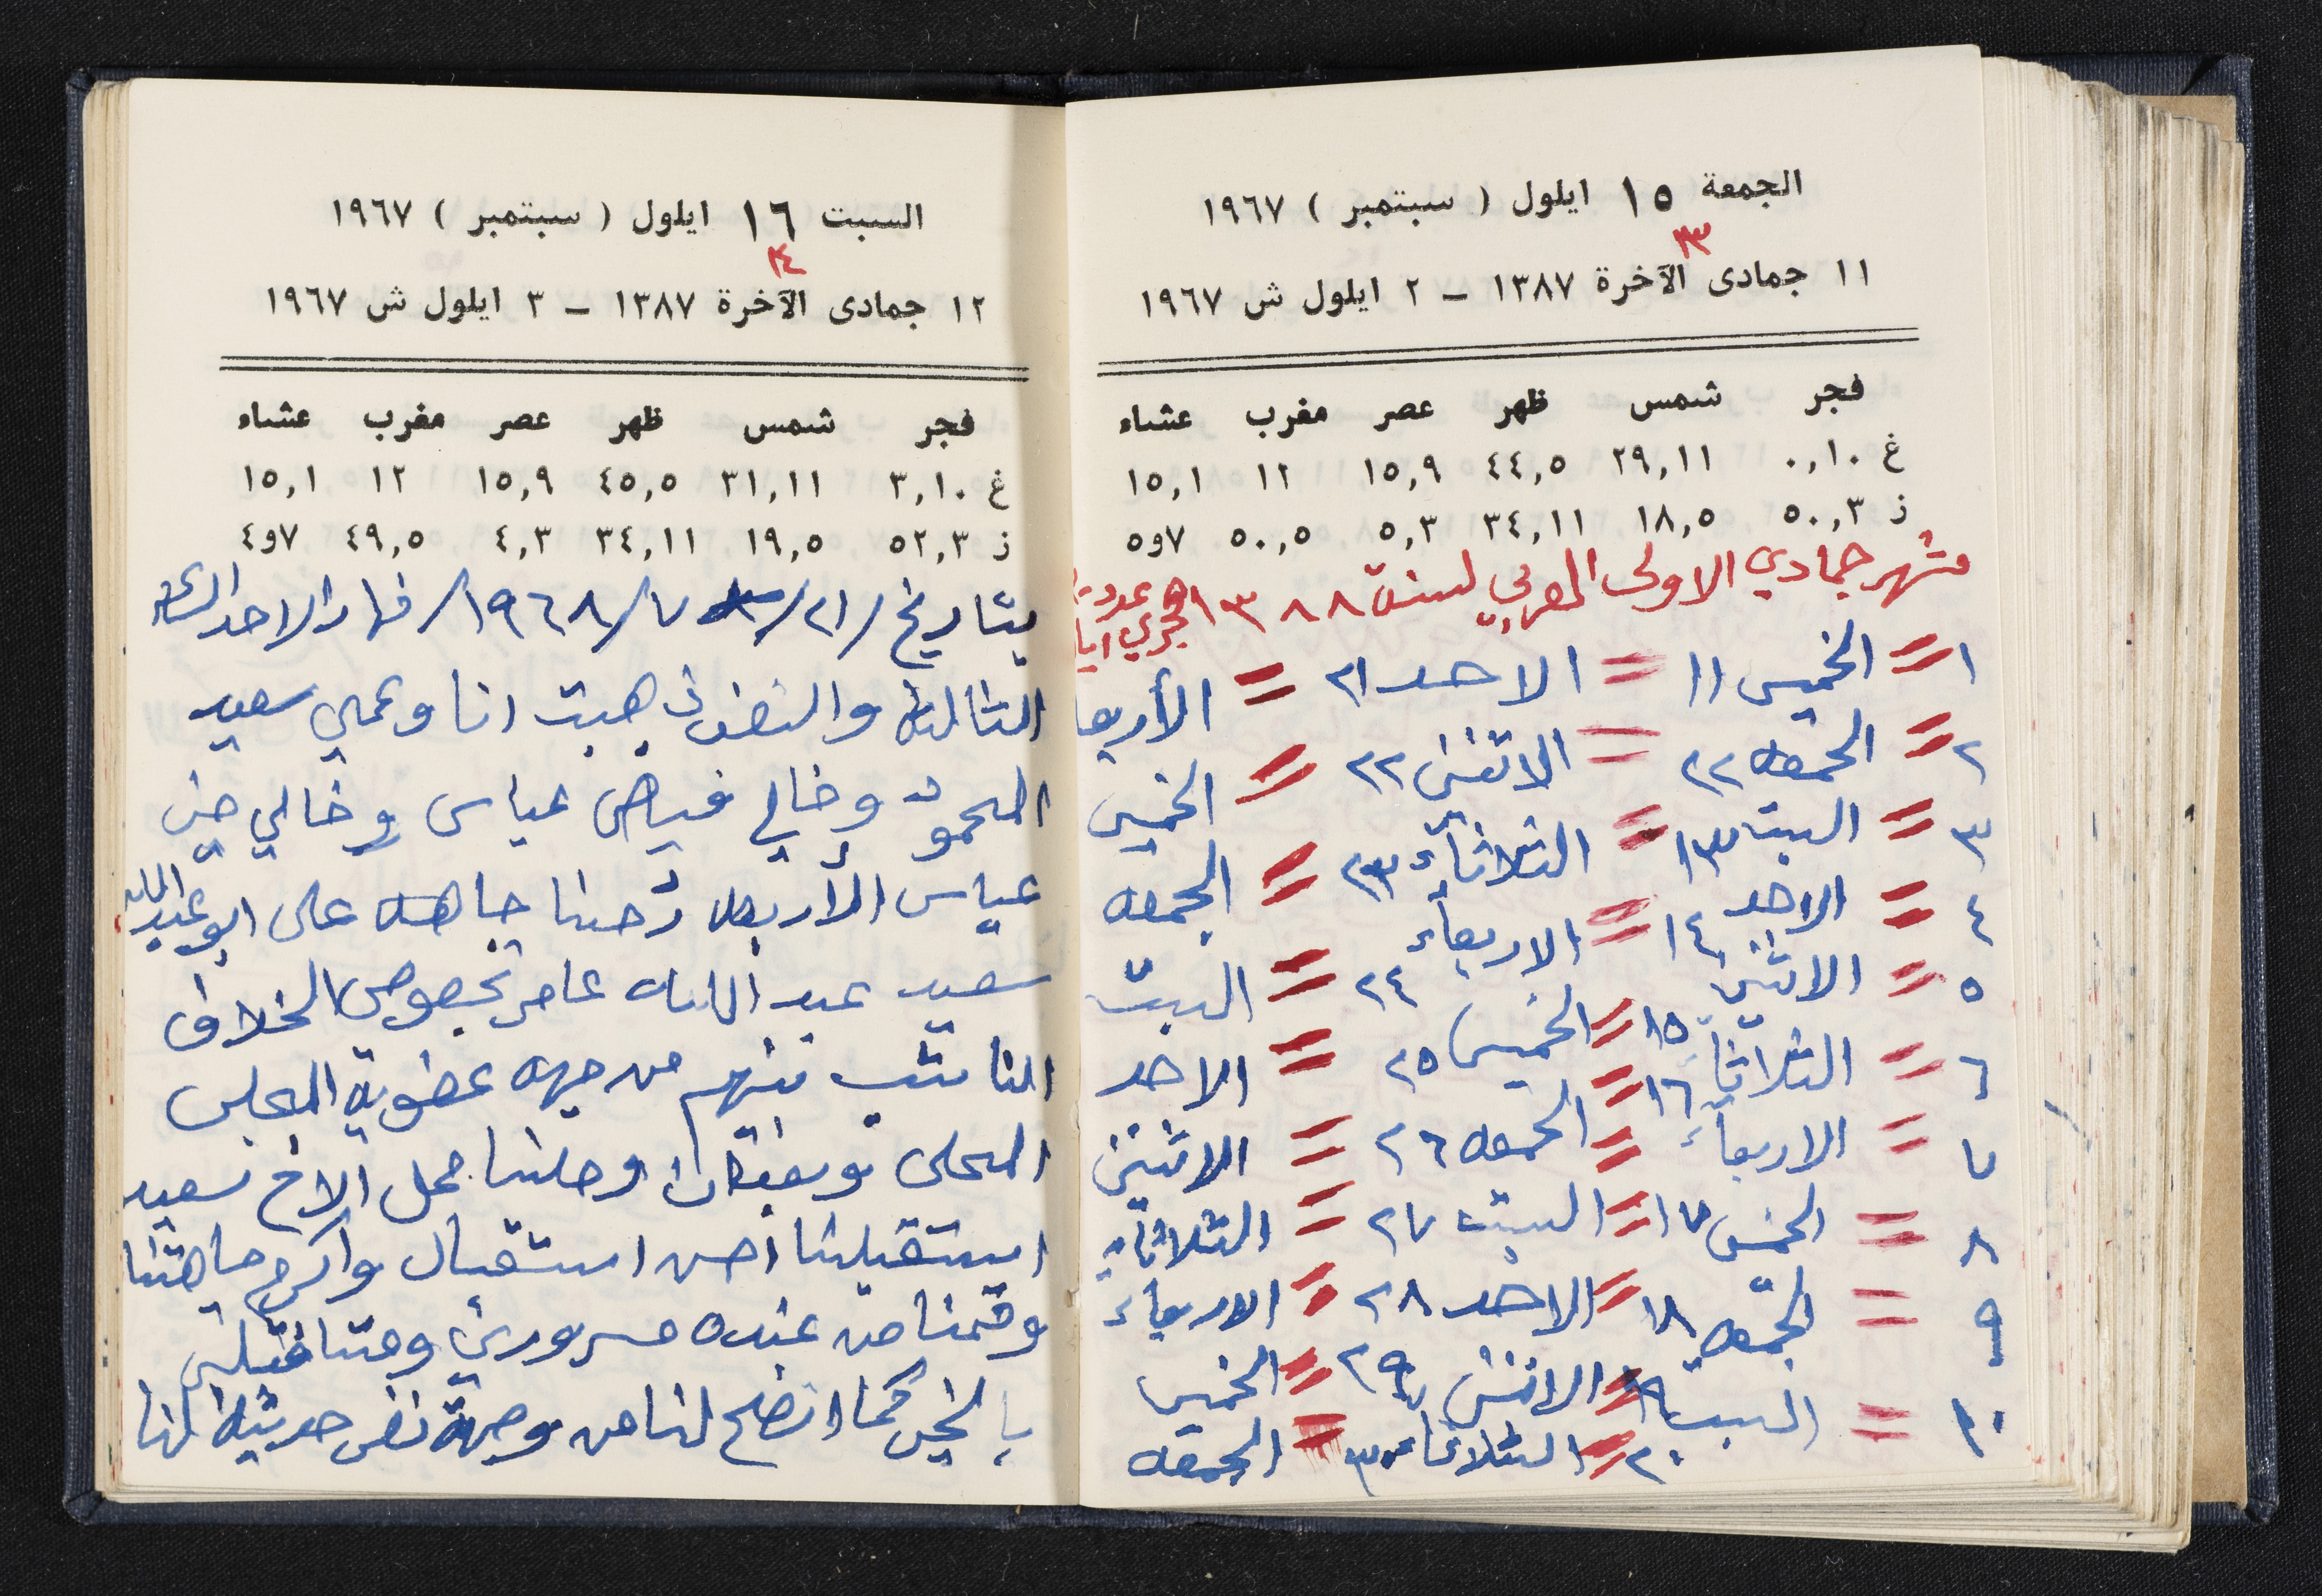 الجمعة ١٥ ايلول ( سبتمبر ) ١٩٦٧
١١ جمادى الآخرة ١٣٨٧ – ٢ ايلول ش ١٩٦٧
فجر شمس ظهر عصر مغرب عشاء
غ ٠,١٠ ٢٩,١١ ٤٤,٥ ١٥,٩ ١٢ ١٥,١
ز ٥٠,٣ ١٨,٥ ٣٤,١١ ٥,٣ ٥٠,٥ ٧و٥
شهر جمادي الاولى العربي لسنة ١٣٨٨ هجري عدد
١ = الخميس ١١ = الاحد ٢١ = الأربعا
٢ = الجمعه ٢٢ = الاثنين ٢٢ = الخميس
٣ = السبت ١٣ = الثلاثاء ٢٣ = الجمعه
٤ = الاحد ١٤ = الاربعاء ٢٤ = السبت
٥ = الاثنين ١٥ = الخميس ٢٥ = الاحد
٦ = الثلاثاء ١٦ = الجمعه ٢٦ = الاثنين
٧ = الاربعاء ١٧ = السبت ٢٧ = الثلاثاء
٨ = الخميس ١٨ = الاحد ٢٨ = الاربعاء
٩ = الجمعه ١٩ = الاثنين ٢٩ = الخميس
١٠ = السبت ٢٠ = الثلاثاء ٣٠ = الجمعه
السبت ١٦ ايلول ( سبتمبر ) ١٩٦٧
١٢ جمادى الآخرة ١٣٨٧ – ٣ ايلول ش ١٩٦٧
فجر شمس ظهر عصر مغرب عشاء
غ ٣,١٠ ٣١,١١ ٤٥,٥ ١٥,٩ ١٢ ١٥,١
ز ٥٢,٣ ١٩,٥ ٣٤,١١ ٤,٣ ٤٩,٥ ٧و٤
بتاريخ /٢١/ ٧/ ١٩٦٨/ نهار الاحد الساعه
الثالثه والنصف ذهبت انا وعمي سعيد
المحمود وخالي فياض عباس وخالي
عباس الأربعه رحنا جاهه على ابو عبد الله
سعيد عبد الله عامر بخصوص الخلاف
الناشب بينهم من جهة عضوية المجلس
المحلي وصلنا محل الاخ سعيد
استقبلنا احسن استقبال واكرم جاهتنا
وقمنا من عنده مسرورين ومتأملين
بالخير كما اتضح لنا من وجهة نظر حديثه لنا